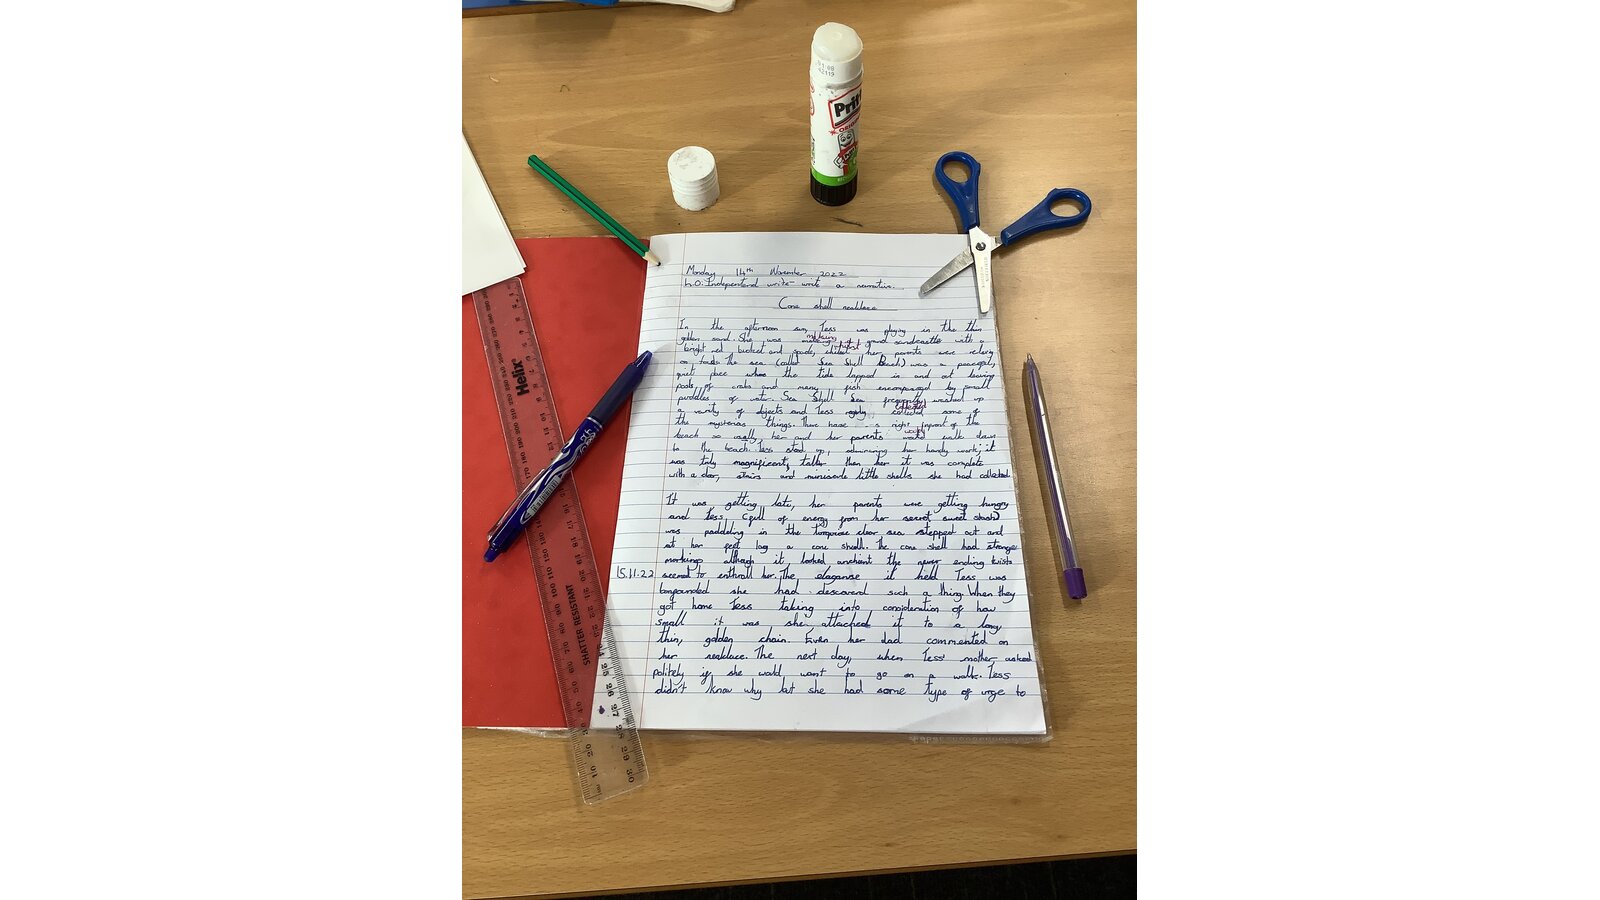 Prit
ORIGINAL
Monday 14th November 2022
L.O: Independend write- write a narrative.
Cone shell necklace
In the afternoon sun, Tess was playing in the thin
golden sand. She was making a grand sandcastle with a
making
whilst
bright red bucked and spade, whilst her parents were relaxy
on towels. The sea (called Sea Shell Beach) was a peaceful,
quiet place where the tide lapped in and out leaving
pools of crabs and many fish encompassed by small
puddles of water. Sea Shell Sea frequently washed up
collected
a variety of objects and Tess collected some of
the mysterious things. There house is right infront of the
would
beach so usually, her and her parents would walk down
to the beach. Tess stood up, admiring her handy work, it
was truly magnificent, taller then her it was complete
with a door, stairs and miniscule little shells she had collected
It was getting late, her parents were getting hungry
and Tess (full of energy from her secret sweet stash)
was paddeling in the turquoise clear sea stepped out and
at her feet lag a cone shell. The cone shell had strange
markings although it looked anchiant the never ending twists
15.11.22 seemed to enthrall her. The elaganse it held Tess was
she had descoverd such a thing. When they
got home Tess taking into consideration of how
small it was she attached it to a long
thin, golden chain. Even her dad commented on
her necklace. The next day, when Tess' mother asked
politely if she would want to go on a walk. Tess
didn't know why but she had some type of urge to
Helix
SHATTER RESISTANT